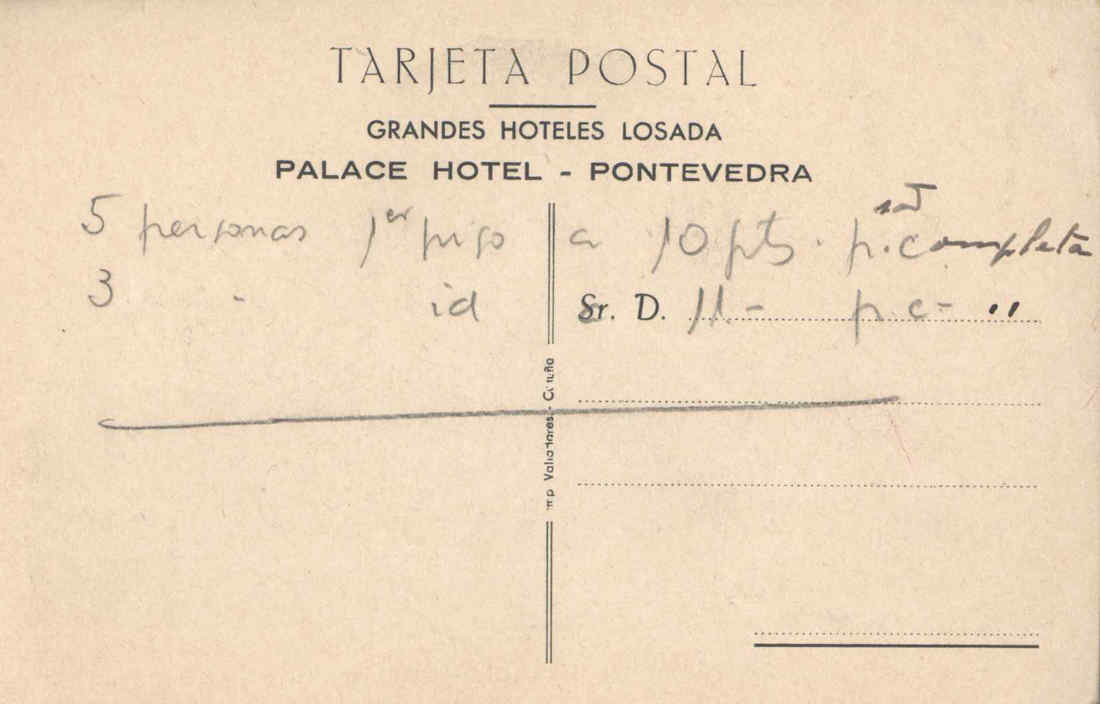 TARJETA POSTAL
GRANDES HOTELES LOSADA
PALACE HOTEL - PONTEVEDRA
5 personas 1er piso a 10 pts. p. completa
3 - id 11.- p.c- "
Sr. D.
Imp Valladares.- Coruña